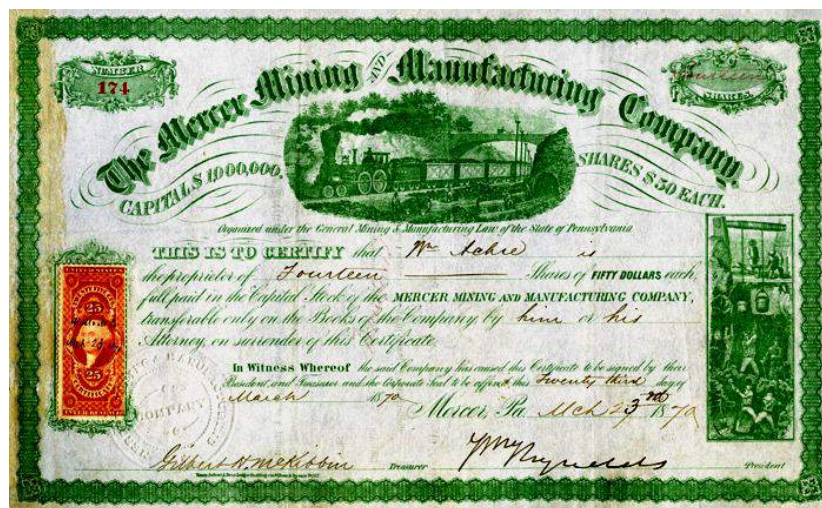 NUMBER
174
Fourteen
SHARES.
The Mercer Mining AND Manufacturing Company.
CAPITAL $ 1,000,000.
SHARES $ 50 EACH.
Organized under the General Mining & Manufacturing Law of the State of Pennsylvania
THIS IS TO CERTIFY that Wm Achre is
the proprietor of Fourteen Shares of FIFTY DOLLARS each,
full paid in the Capital Stock of the MERCER MINING AND MANUFACTURING COMPANY,
transferable only on the Books of the Company, by him or his
Attorney, on surrender of this Certificate.
In Witness Whereof the said Company has caused this Certificate to be signed by their
President, and Treasurer and the Corporate Seal to be affixed this Twenty third day of
March 1870
Mercer, Pa. Mch 23rd 1870
Gilbert H. McKibbin Treasurer
Reynolds President
25
25
CERTIFICATE
COMPANY